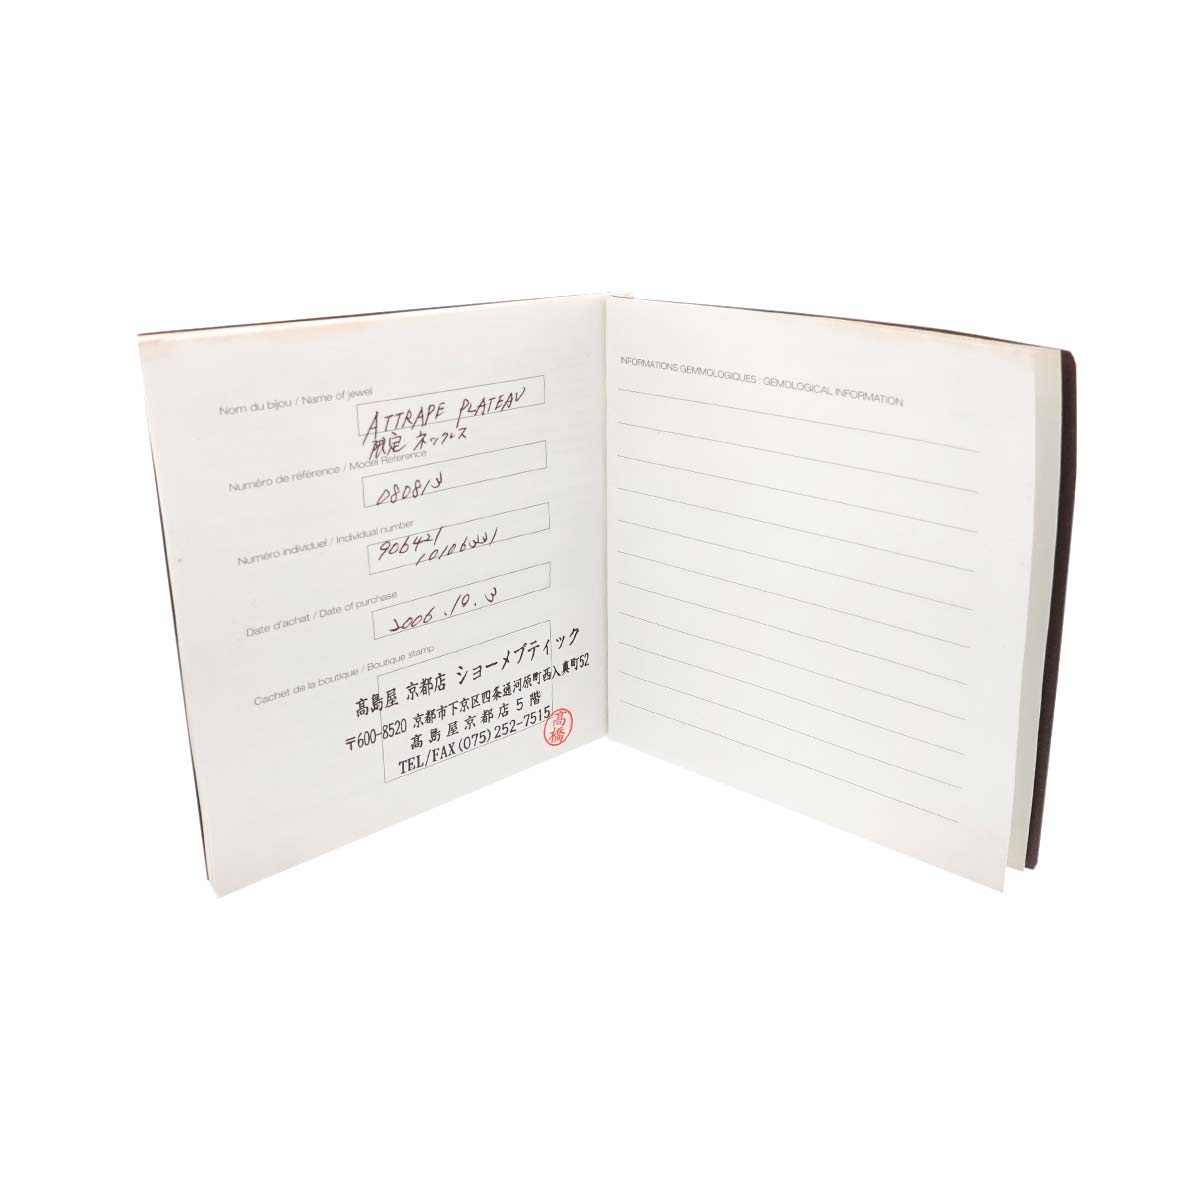 Nom du bijou / Name of jewel
ATTRAPE PLATEAU
限定 ネックレス
Numéro de référence / Model Reference
080813
Numéro individuel / Individual number
906421
10106331
Date d'achat / Date of purchase
2006.10.3
Cachet de la boutique / Boutique stamp
髙島屋 京都店 ショーメブティック
〒600-8520 京都市下京区四条通河原町西入真町52
髙島屋京都店5階
TEL/FAX(075)252-7515
高橋
INFORMATIONS GEMMOLOGIQUES : GEMOLOGICAL INFORMATION